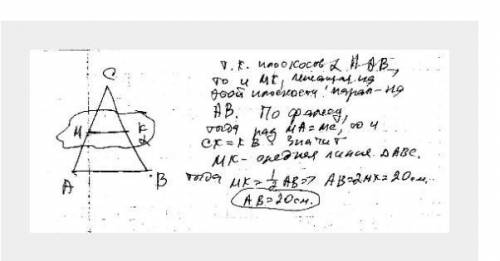 C
M
K
α
A
B
т.к. плоскость α || AB,
то и MK, лежащая на
этой плоскости парал-на
AB. По фалесу,
тогда раз MA=MC, то и
CK=KB. Значит
MK- средняя линия ΔABC.
тогда MK=1/2 AB=> AB=2MK=20см.
AB=20см.